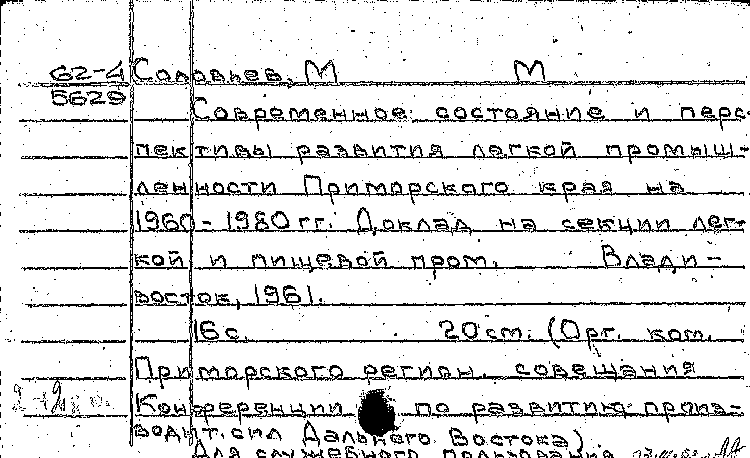 62-4 Соловьев, М М
5629
Современное состояние и перс-
пективы развития легкой промыш-
ленности Приморского края на
1960-1980 гг. Доклад на секции лег-
кой и пищевой пром. Влади-
восток, 1961.
16 с. 20 см. (Орг. ком.
Приморского регион. совещания
Конференции по развитию произ-
водит. сил Дальнего Востока)
Для служебного пользования